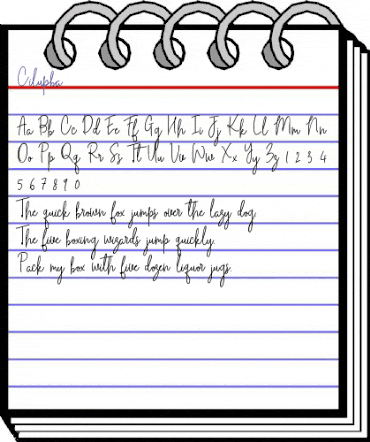 Cilupba
Aa Bb Cc Dd Ee Ff Gg Hh Ii Jj Kk Ll Mm Nn
Oo Pp Qq Rr Ss Tt Uu Vv Ww Xx Yy Zz 1 2 3 4
5 6 7 8 9 0
The quick brown fox jumps over the lazy dog.
The five boxing wizards jump quickly.
Pack my box with five dozen liquor jugs.